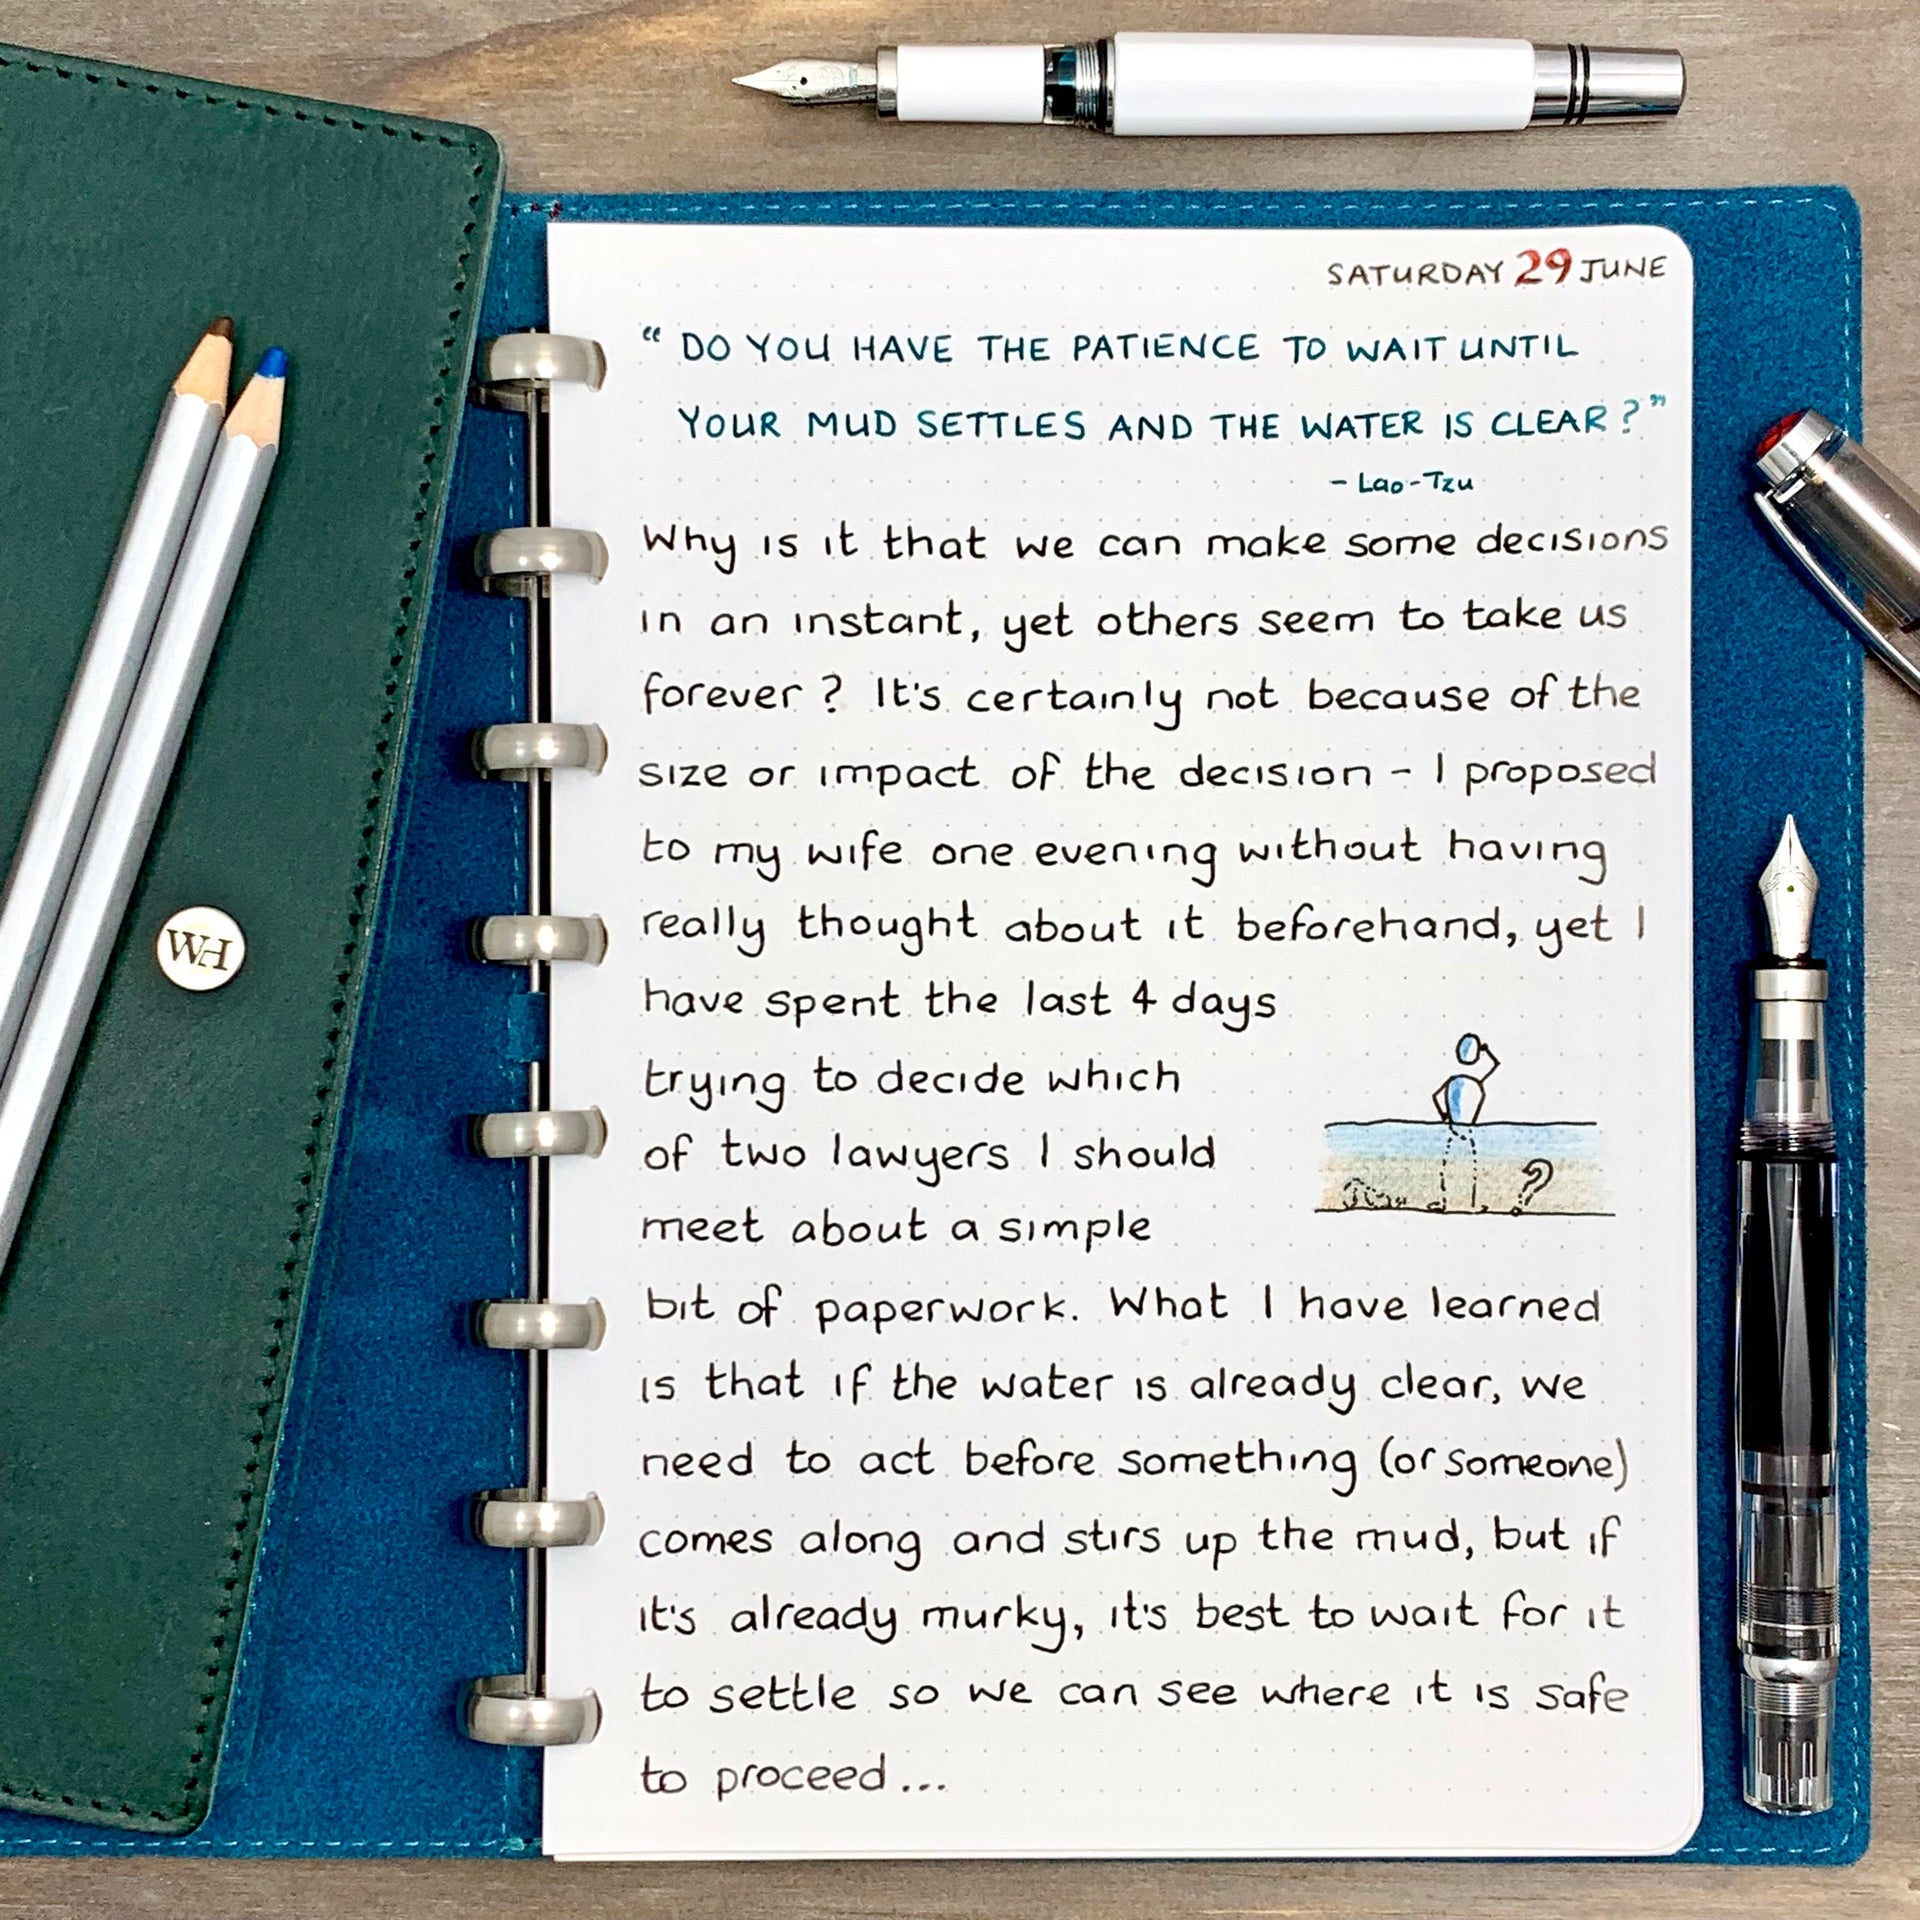 SATURDAY 29 JUNE
“DO YOU HAVE THE PATIENCE TO WAIT UNTIL
YOUR MUD SETTLES AND THE WATER IS CLEAR?”
- Lao-Tzu
Why is it that we can make some decisions
in an instant, yet others seem to take us
forever? It's certainly not because of the
size or impact of the decision - I proposed
to my wife one evening without having
really thought about it beforehand, yet I
have spent the last 4 days
trying to decide which
of two lawyers I should
meet about a simple
?
bit of paperwork. What I have learned
is that if the water is already clear, we
need to act before something (or someone)
comes along and stirs up the mud, but if
it's already murky, it's best to wait for it
to settle so we can see where it is safe
to proceed...
WH